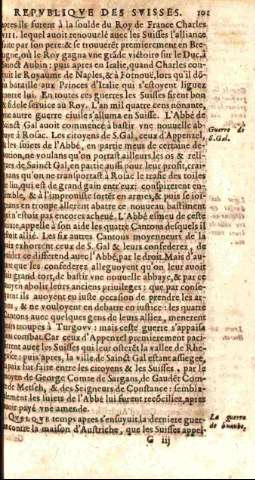 REPVBLIQVE DES SVISSES. 101
apres ils furent à la soulde du Roy de France Charles
VIII. lequel auoit renouuelé auec les Suisses l'alliance
faite par son pere: & se trouuerẽt premierement en Bre-
tagne, où le Roy gagna vne grãde victoire sur le Duc, à
Sainct Aubin: puis apres en Italie, quand Charles con-
quit le Royaume de Naples, & à Fornoüe, lors qu'il dõ-
na bataille aux Princes d'Italie qui s'estoyent liguez
contre lui. En toutes ces guerres les Suisses firent bon
& fidele seruice au Roy. L'an mil quatre cens nonante,
vne autre guerre ciuile s'alluma en Suisse. L'Abbé de
Sainct Gal auoit commencé à bastir vne nouuelle ab-
Guerre de
S. Gal.
baye à Rosac. Les citoyens de S. Gal, ceux d'Appenzel,
les suiets de l'Abbé, en partie meus de certaine de-
uotion, ne voulans qu'on portast ailleurs les os & reli-
ques de Sainct Gal, en partie aussi pour leur profit, crai-
gnans qu'on ne transportast à Rosac le trafic des toiles
de lin, qui est de grand gain entr'eux: conspirerent en-
semble, & à l'improuiste forcẽt en armes, & puis se
en troupe allerent abatre ce nouueau bastiment
n'estoit pas encores acheué. L'Abbé esmeu de ceste
iniure, appelle à son aide les quatre Cantons desquels il
estoit allié. Les six autres Cantons moyenneurs de la
paix exhortent ceux de S. Gal & leurs confederez, de
vuider ce different auec l'Abbé, par le droit. Mais d'au-
tant que les confederez alleguoyent qu'on leur auoit
fait grand tort, de bastir vne nouuelle abbaye, & par ce
moyen abolir leurs anciens priuileges: que par conse-
quent ils auoyent eu iuste occasion de prendre les ar-
mes, & ne vouloyent en debatre en iustice: les quatre
Cantons auec quelques gens de leurs alliez, menerent
leurs troupes à Turgovv: mais ceste guerre s'appaisa
sans combat. Car ceux d'Appenzel premierement paci-
fierent auec les Suisses qui leur osterẽt la vallee de Rhe-
: puis apres, la ville de Sainct Gal estant assiegee,
la paix fut faite entre les citoyens & les Suisses, par le
moyen de George Comte de Sargans, de Gaudẽt Com-
te de Metsch, & des Seigneurs de Constance: sembla-
blement les suiets de l'Abbé lui furent recõciliez, apres
auoir payé vne amende.
QVELQVE temps apres s'ensuyuit la derniere guer-
La guerre
de Suaube,
re contre la maison d'Austriche, que les Suisses appel-
G iij